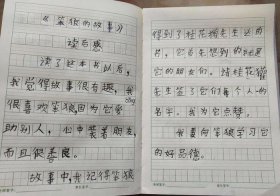 《笨狼的故事》
读后感
读了这本书以后，
我觉得故事很有趣，我
很喜欢笨狼因为它爱
助别人，心中装着朋友，
而且很善良。
故事中我记得笨狼
得到了桂花糖先生送的
书，它首先想到的就是
它的朋友们，请桂花糖
先生签了它们每个人的
名字。我为它点赞。
我要向笨狼学习它
的好品德。